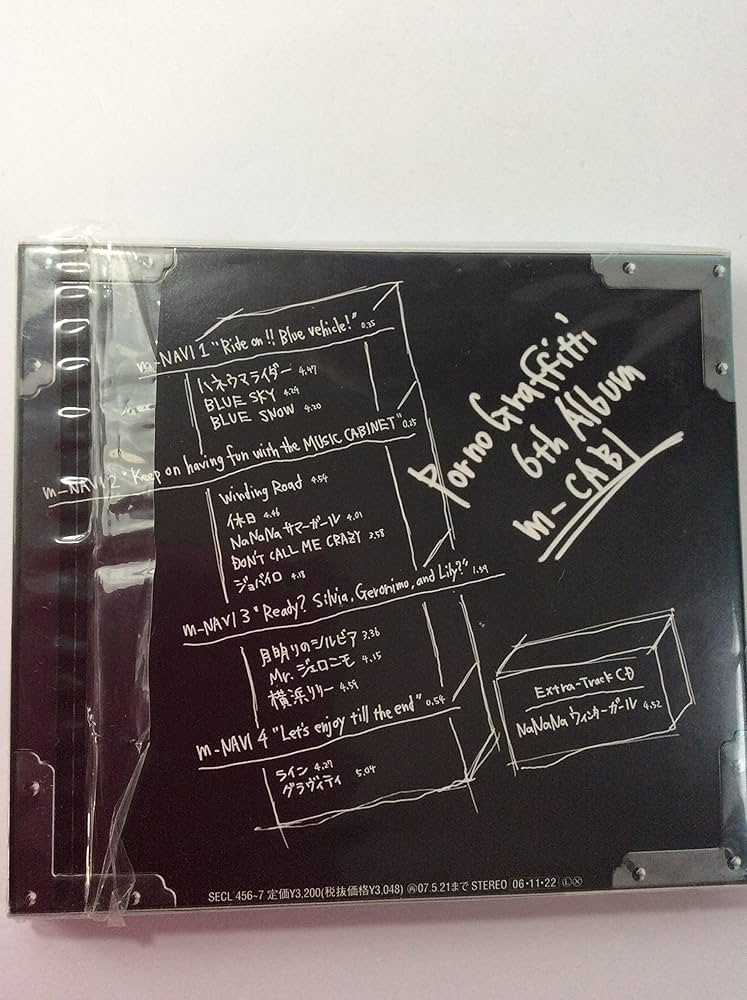 m-NAVI 1 "Ride on!! Blue vehicle!" 0.35
ハネウマライダー 4.47
BLUE SKY 4.29
BLUE SNOW 4.20
m-NAVI 2 "Keep on having fun with the MUSIC CABINET" 0.25
Winding Road 4.54
休日 4.46
NaNaNa サマーガール 4.01
DON'T CALL ME CRAZY 3.58
ジョバイロ 4.18
m-NAVI 3 "Ready? Silvia, Geronimo, and Lily?" 1.59
月明りのシルビア 3.36
Mr. ジェロニモ 4.15
横浜リリー 4.59
m-NAVI 4 "Let's enjoy till the end" 0.54
ライン 4.27
グラヴィティ 5.04
Porno Graffitti
6th Album
m-CABI
Extra-Track CD
NaNaNa ウィンターガール 4.52
SECL 456~7 定価¥3,200(税抜価格¥3,048) 再07.5.21まで STEREO 06・11・22 Ⓛ